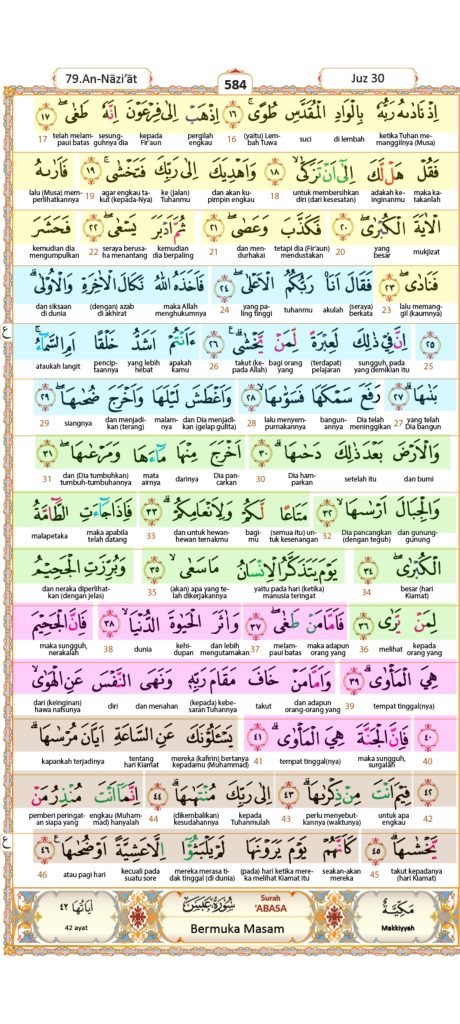 79.An-Nāzi'āt
584
Juz 30
اِذْ نَادٰىهُ رَبُّهٗ بِالْوَادِ الْمُقَدَّسِ طُوًىۚ ﴿١٦﴾ اِذْهَبْ اِلٰى فِرْعَوْنَ اِنَّهٗ طَغٰىۖ ﴿١٧﴾
ketika Tuhan memanggilnya (Musa) di lembah suci (yaitu) Lembah Tuwa 16 pergilah engkau kepada Fir'aun sesungguhnya dia telah melampaui batas 17
فَقُلْ هَلْ لَّكَ اِلٰٓى اَنْ تَزَكّٰىۙ ﴿١٨﴾ وَاَهْدِيَكَ اِلٰى رَبِّكَ فَتَخْشٰىۚ ﴿١٩﴾ فَاَرٰىهُ
maka katakanlah adakah keinginanmu untuk membersihkan diri (dari kesesatan) 18 dan akan kupimpin engkau ke (jalan) Tuhanmu agar engkau takut (kepada-Nya) 19 lalu (Musa) memperlihatkannya
الْاٰيَةَ الْكُبْرٰىۖ ﴿٢٠﴾ فَكَذَّبَ وَعَصٰىۖ ﴿٢١﴾ ثُمَّ اَدْبَرَ يَسْعٰىۖ ﴿٢٢﴾ فَحَشَرَ
mukjizat yang besar 20 tetapi dia (Fir'aun) mendustakan dan mendurhakai 21 kemudian dia berpaling seraya berusaha menantang 22 kemudian dia mengumpulkan
فَنَادٰىۖ ﴿٢٣﴾ فَقَالَ اَنَا۠ رَبُّكُمُ الْاَعْلٰىۖ ﴿٢٤﴾ فَاَخَذَهُ اللّٰهُ نَكَالَ الْاٰخِرَةِ وَالْاُوْلٰىۗ
lalu memanggil (kaumnya) 23 (seraya) berkata akulah tuhanmu yang paling tinggi 24 maka Allah menghukumnya (dengan) azab di akhirat dan siksaan di dunia
﴿٢٥﴾ اِنَّ فِيْ ذٰلِكَ لَعِبْرَةً لِّمَنْ يَّخْشٰىۗ ﴿٢٦﴾ ءَاَنْتُمْ اَشَدُّ خَلْقًا اَمِ السَّمَاۤءُۚ
25 sungguh, pada yang demikian itu (terdapat) pelajaran bagi orang yang takut (kepada Allah) 26 apakah kamu yang lebih hebat penciptaannya ataukah langit
ع
بَنٰىهَاۗ ﴿٢٧﴾ رَفَعَ سَمْكَهَا فَسَوّٰىهَاۙ ﴿٢٨﴾ وَاَغْطَشَ لَيْلَهَا وَاَخْرَجَ ضُحٰىهَاۖ ﴿٢٩﴾
yang telah Dia bangun 27 Dia telah meninggikan bangunannya lalu menyempurnakannya 28 dan Dia menjadikan (gelap gulita) malamnya dan menjadikan (terang) siangnya 29
وَالْاَرْضَ بَعْدَ ذٰلِكَ دَحٰىهَاۗ ﴿٣٠﴾ اَخْرَجَ مِنْهَا مَاۤءَهَا وَمَرْعٰىهَاۖ ﴿٣١﴾
dan bumi setelah itu Dia hamparkan 30 Dia pancarkan darinya mata airnya dan (Dia tumbuhkan) tumbuh-tumbuhannya 31
وَالْجِبَالَ اَرْسٰىهَاۙ ﴿٣٢﴾ مَتَاعًا لَّكُمْ وَلِاَنْعَامِكُمْۗ ﴿٣٣﴾ فَاِذَا جَاۤءَتِ الطَّاۤمَّةُ
dan gunung-gunung Dia pancangkan (dengan teguh) 32 (semua itu) untuk kesenangan bagimu dan untuk hewan-hewan ternakmu 33 maka apabila telah datang malapetaka
الْكُبْرٰىۖ ﴿٣٤﴾ يَوْمَ يَتَذَكَّرُ الْاِنْسَانُ مَا سَعٰىۙ ﴿٣٥﴾ وَبُرِّزَتِ الْجَحِيْمُ
besar (hari Kiamat) 34 yaitu pada hari (ketika) manusia teringat (akan) apa yang telah dikerjakannya 35 dan neraka diperlihatkan (dengan jelas)
لِمَنْ يَّرٰى ﴿٣٦﴾ فَاَمَّا مَنْ طَغٰىۖ ﴿٣٧﴾ وَاٰثَرَ الْحَيٰوةَ الدُّنْيَاۙ ﴿٣٨﴾ فَاِنَّ الْجَحِيْمَ
kepada orang yang melihat 36 maka adapun orang yang melampaui batas 37 dan lebih mengutamakan kehidupan dunia 38 maka sungguh, nerakalah
هِيَ الْمَأْوٰىۗ ﴿٣٩﴾ وَاَمَّا مَنْ خَافَ مَقَامَ رَبِّهٖ وَنَهَى النَّفْسَ عَنِ الْهَوٰىۙ
tempat tinggal(nya) 39 dan adapun orang-orang yang takut (kepada) kebesaran Tuhannya dan menahan diri dari (keinginan) hawa nafsunya
﴿٤٠﴾ فَاِنَّ الْجَنَّةَ هِيَ الْمَأْوٰىۗ ﴿٤١﴾ يَسْـَٔلُوْنَكَ عَنِ السَّاعَةِ اَيَّانَ مُرْسٰىهَاۗ
40 maka sungguh, surgalah tempat tinggal(nya) 41 mereka (kafirin) bertanya kepadamu (Muhammad) tentang hari Kiamat kapankah terjadinya
فِيْمَ اَنْتَ مِنْ ذِكْرٰىهَاۗ ﴿٤٣﴾ اِلٰى رَبِّكَ مُنْتَهٰىهَاۗ ﴿٤٤﴾ اِنَّمَآ اَنْتَ مُنْذِرُ مَنْ
42 untuk apa engkau perlu menyebutkannya (waktunya) 43 kepada Tuhanmulah (dikembalikan) kesudahannya 44 engkau (Muhammad) hanyalah pemberi peringatan siapa yang
يَّخْشٰىهَاۗ ﴿٤٥﴾ كَاَنَّهُمْ يَوْمَ يَرَوْنَهَا لَمْ يَلْبَثُوْٓا اِلَّا عَشِيَّةً اَوْ ضُحٰىهَا ﴿٤٦﴾
takut kepadanya (hari Kiamat) 45 seakan-akan mereka (pada) hari ketika mereka melihat Kiamat itu mereka merasa tidak tinggal (di dunia) kecuali pada suatu sore atau pagi hari 46
ع
مَكِّيَّةٌ
Makkiyyah
سُوْرَةُ عَبَسَ
Surah 'ABASA
Bermuka Masam
اٰيَاتُهَا ٤٢
42 ayat